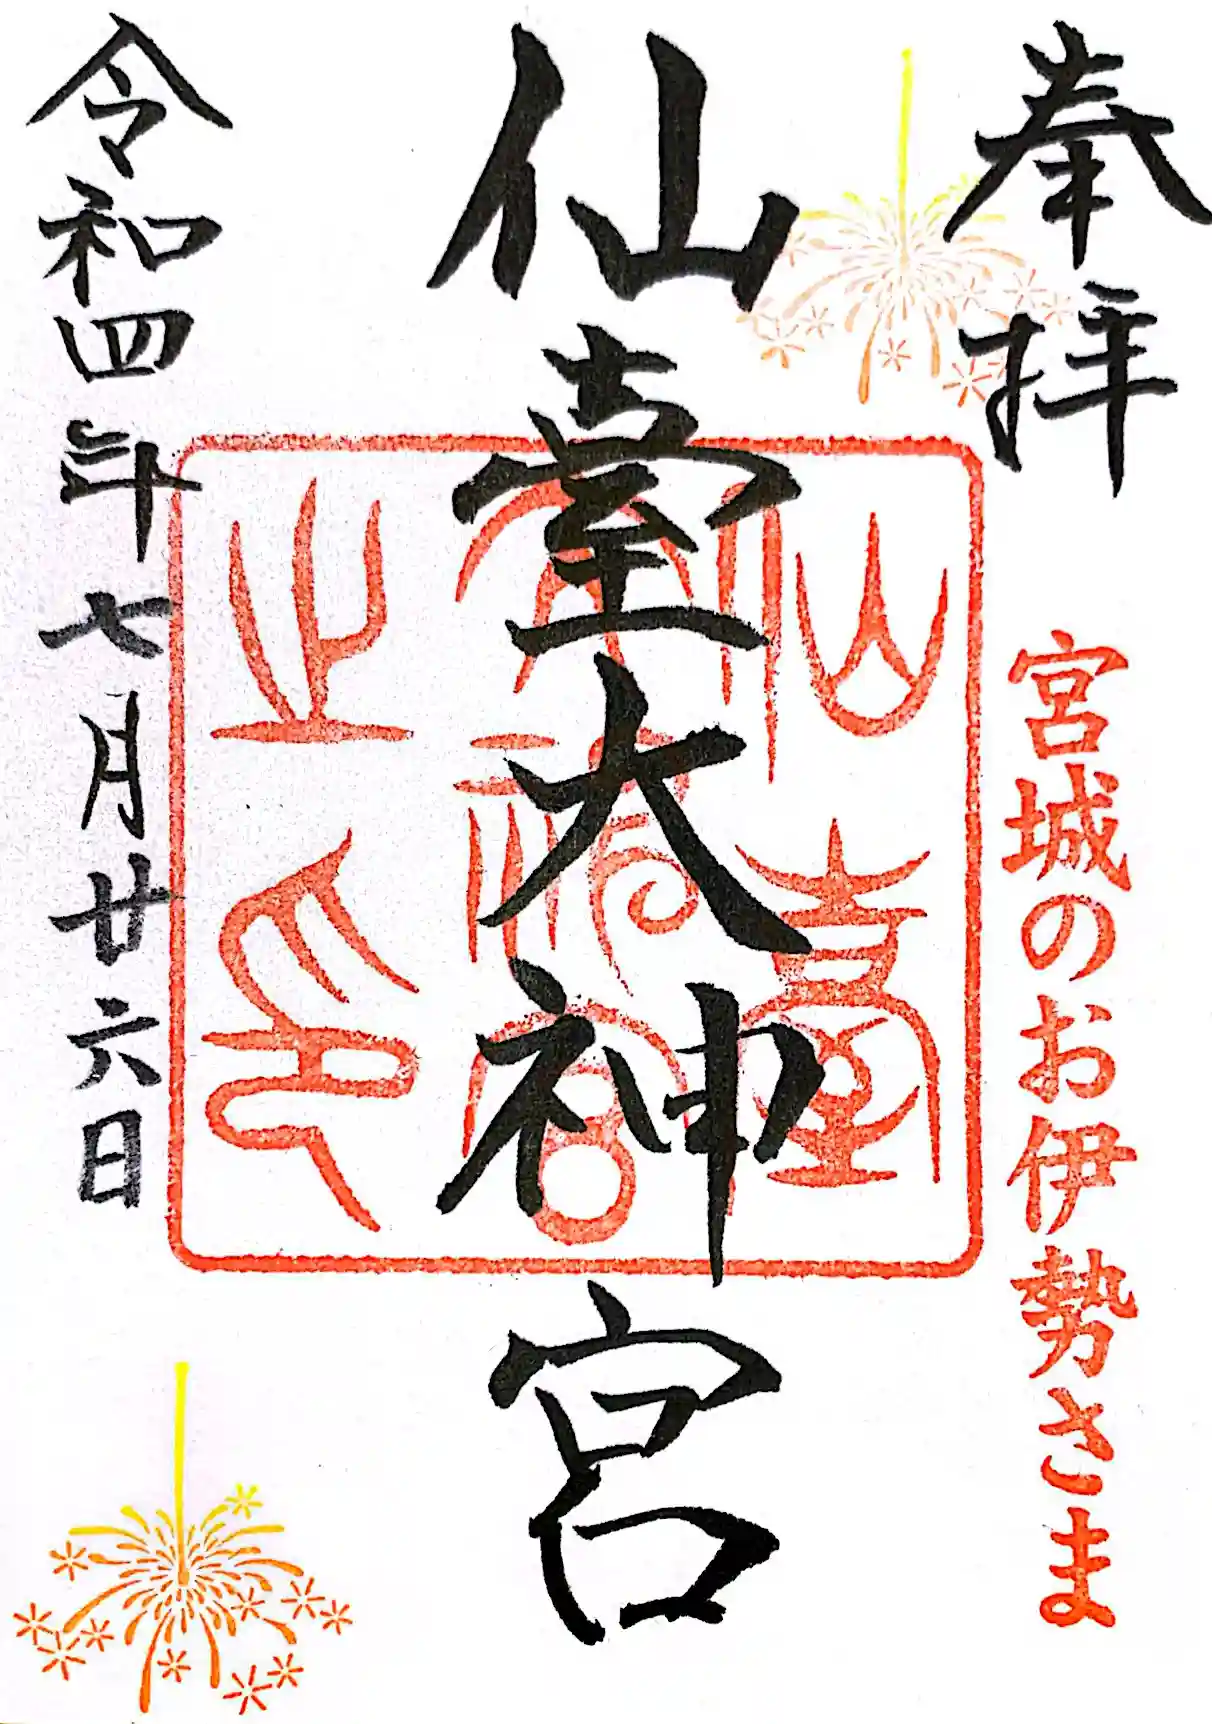 奉拝
宮城のお伊勢さま
仙臺大神宮
仙臺
大神宮
之印
令和四年七月廿六日